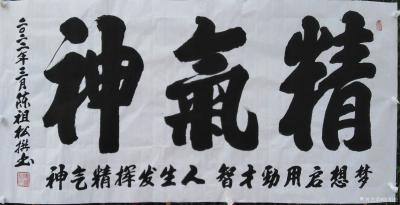 精氣神
梦想启用勁才智 人生发挥精气神
二〇二二年三月陈祖松撰书